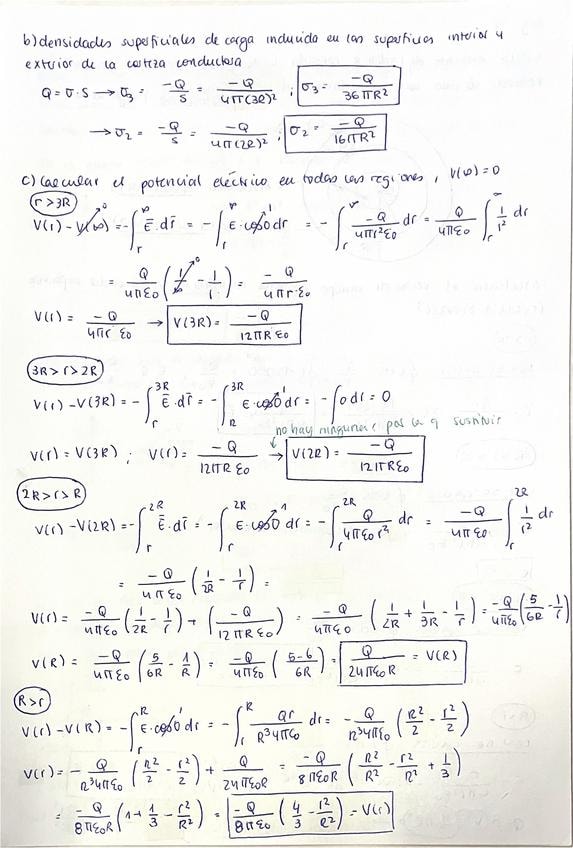 b) densidades superficiales de carga inducida en las superficies interior y
exterior de la corteza conductora
Q = σ·S → σ₃ = -Q/S = -Q/4π(3R)² ; σ₃ = -Q/36πR²
→ σ₂ = -Q/S = -Q/4π(2R)² ; σ₂ = -Q/16πR²
c) Calcular el potencial eléctrico en todas las regiones, V(∞) = 0
r > 3R
V(r) - V(∞)→0 = -∫ᵣ^∞ E̅·dr̅ = -∫ᵣ^∞ E·cos0→1 dr = -∫ᵣ^∞ -Q/4πr²ε₀ dr = Q/4πε₀ ∫ᵣ^∞ 1/r² dr
= Q/4πε₀ (1/∞→0 - 1/r) = -Q/4πr·ε₀
V(r) = -Q/4πr·ε₀ → V(3R) = -Q/12πRε₀
3R > r > 2R
V(r) - V(3R) = -∫ᵣ^3R E̅·dr̅ = -∫_R^3R E·cos0→1 dr = -∫0 dr = 0
no hay ninguna r por la q sustituir
V(r) = V(3R) ; V(r) = -Q/12πRε₀ → V(2R) = -Q/12πRε₀
2R > r > R
V(r) - V(2R) = -∫ᵣ^2R E̅·dr̅ = -∫ᵣ^2R E·cos0→1 dr = -∫ᵣ^2R Q/4πε₀r² dr = -Q/4πε₀ ∫ᵣ^2R 1/r² dr
= -Q/4πε₀ (1/2R - 1/r) =
V(r) = -Q/4πε₀ (1/2R - 1/r) + (-Q/12πRε₀) = -Q/4πε₀ (1/2R + 1/3R - 1/r) = -Q/4πε₀ (5/6R - 1/r)
V(R) = -Q/4πε₀ (5/6R - 1/R) = -Q/4πε₀ (5-6/6R) = Q/24πε₀R = V(R)
R > r
V(r) - V(R) = -∫ᵣ^R E·cos0→1 dr = -∫ᵣ^R Qr/R³4πε₀ dr = -Q/R³4πε₀ (R²/2 - r²/2)
V(r) = -Q/R³4πε₀ (R²/2 - r²/2) + Q/24πε₀R = -Q/8πε₀R (R²/R² - r²/R² + 1/3)
= -Q/8πε₀R (1 + 1/3 - r²/R²) = -Q/8πε₀ (4/3 - r²/R²) = V(r)